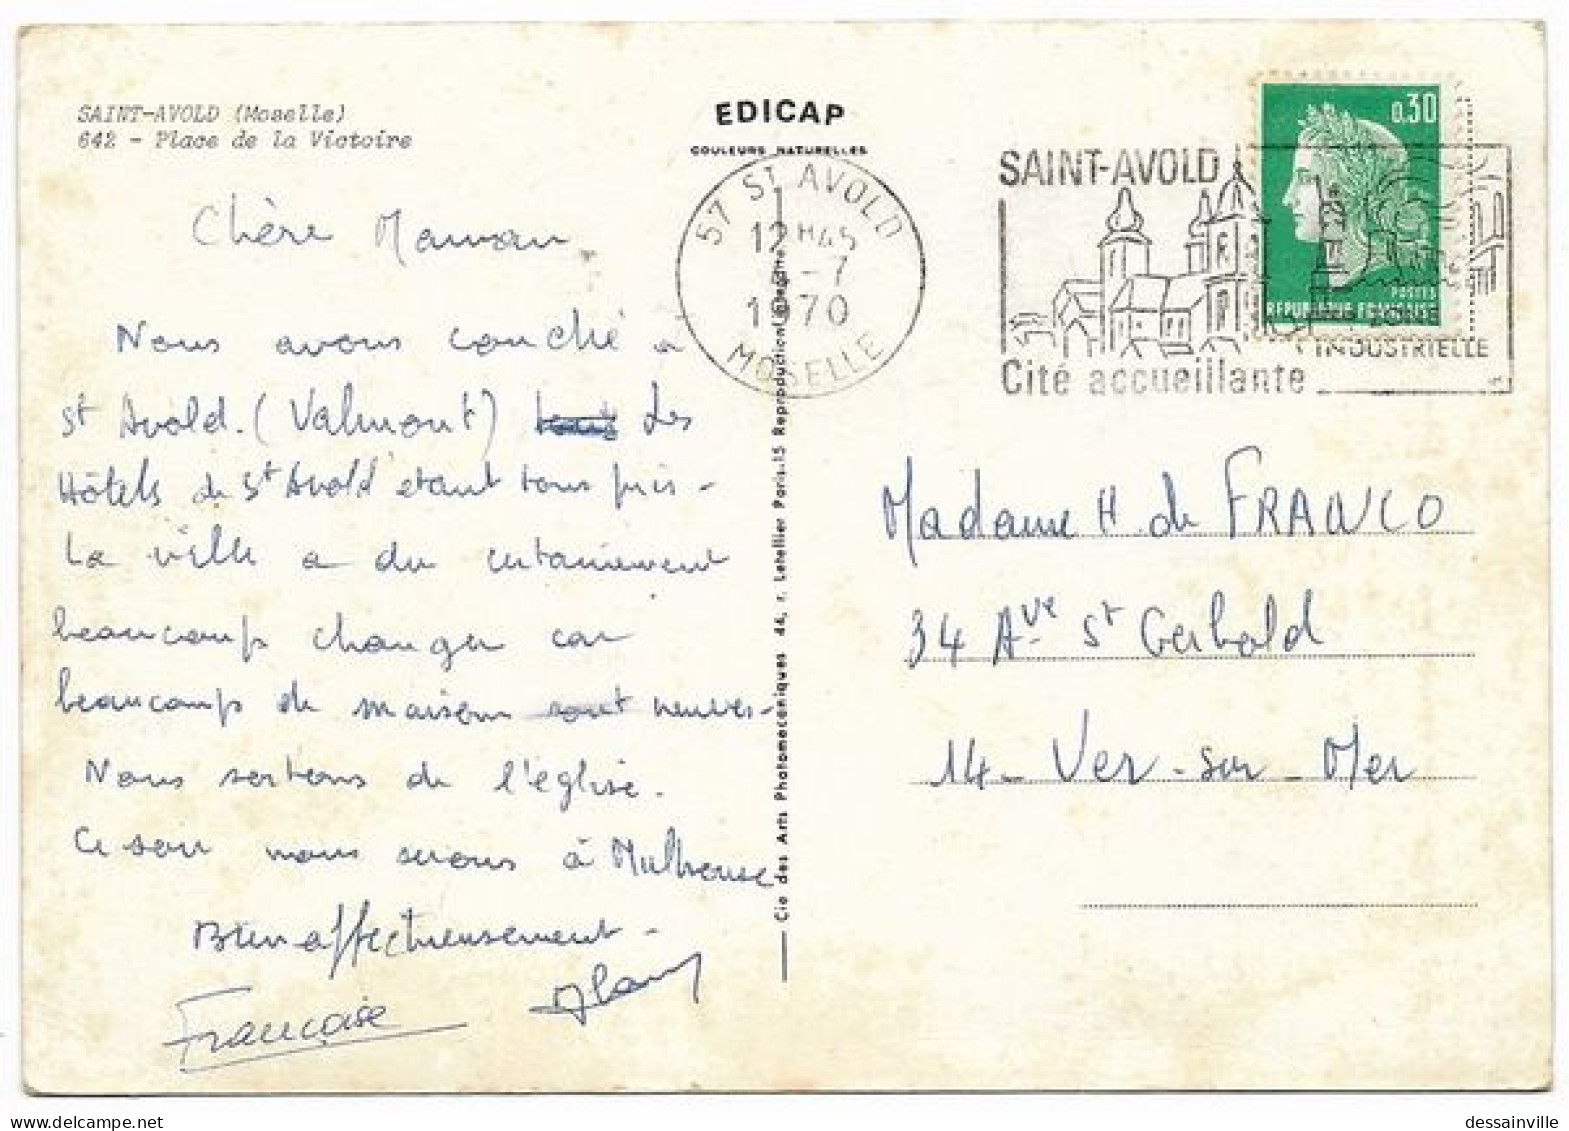 SAINT-AVOLD (Moselle)
642 - Place de la Victoire
EDICAP
COULEURS NATURELLES
Chère Maman
Nous avons couché à
St Avold. (Valmont) les
Hôtels de St Avold étant tous pris -
La ville a du certainement
beaucoup changer car
beaucoup de maisons sont neuves -
Nous sortons de l'église.
Ce soir nous serons à Mulhouse
Bien affectueusement -
Françoise Alain
Cie des Arts Photomecaniques 44, r. Letellier Paris.15 Reproduction
57 ST AVOLD
12H45
-7
1970
MOSELLE
SAINT-AVOLD
Cité accueillante
INDUSTRIELLE
0,30
POSTES
REPUBLIQUE FRANÇAISE
Madame H. de FRANCO
34 Ave St Gerbold
14 - Ver - sur - Mer
dessainville